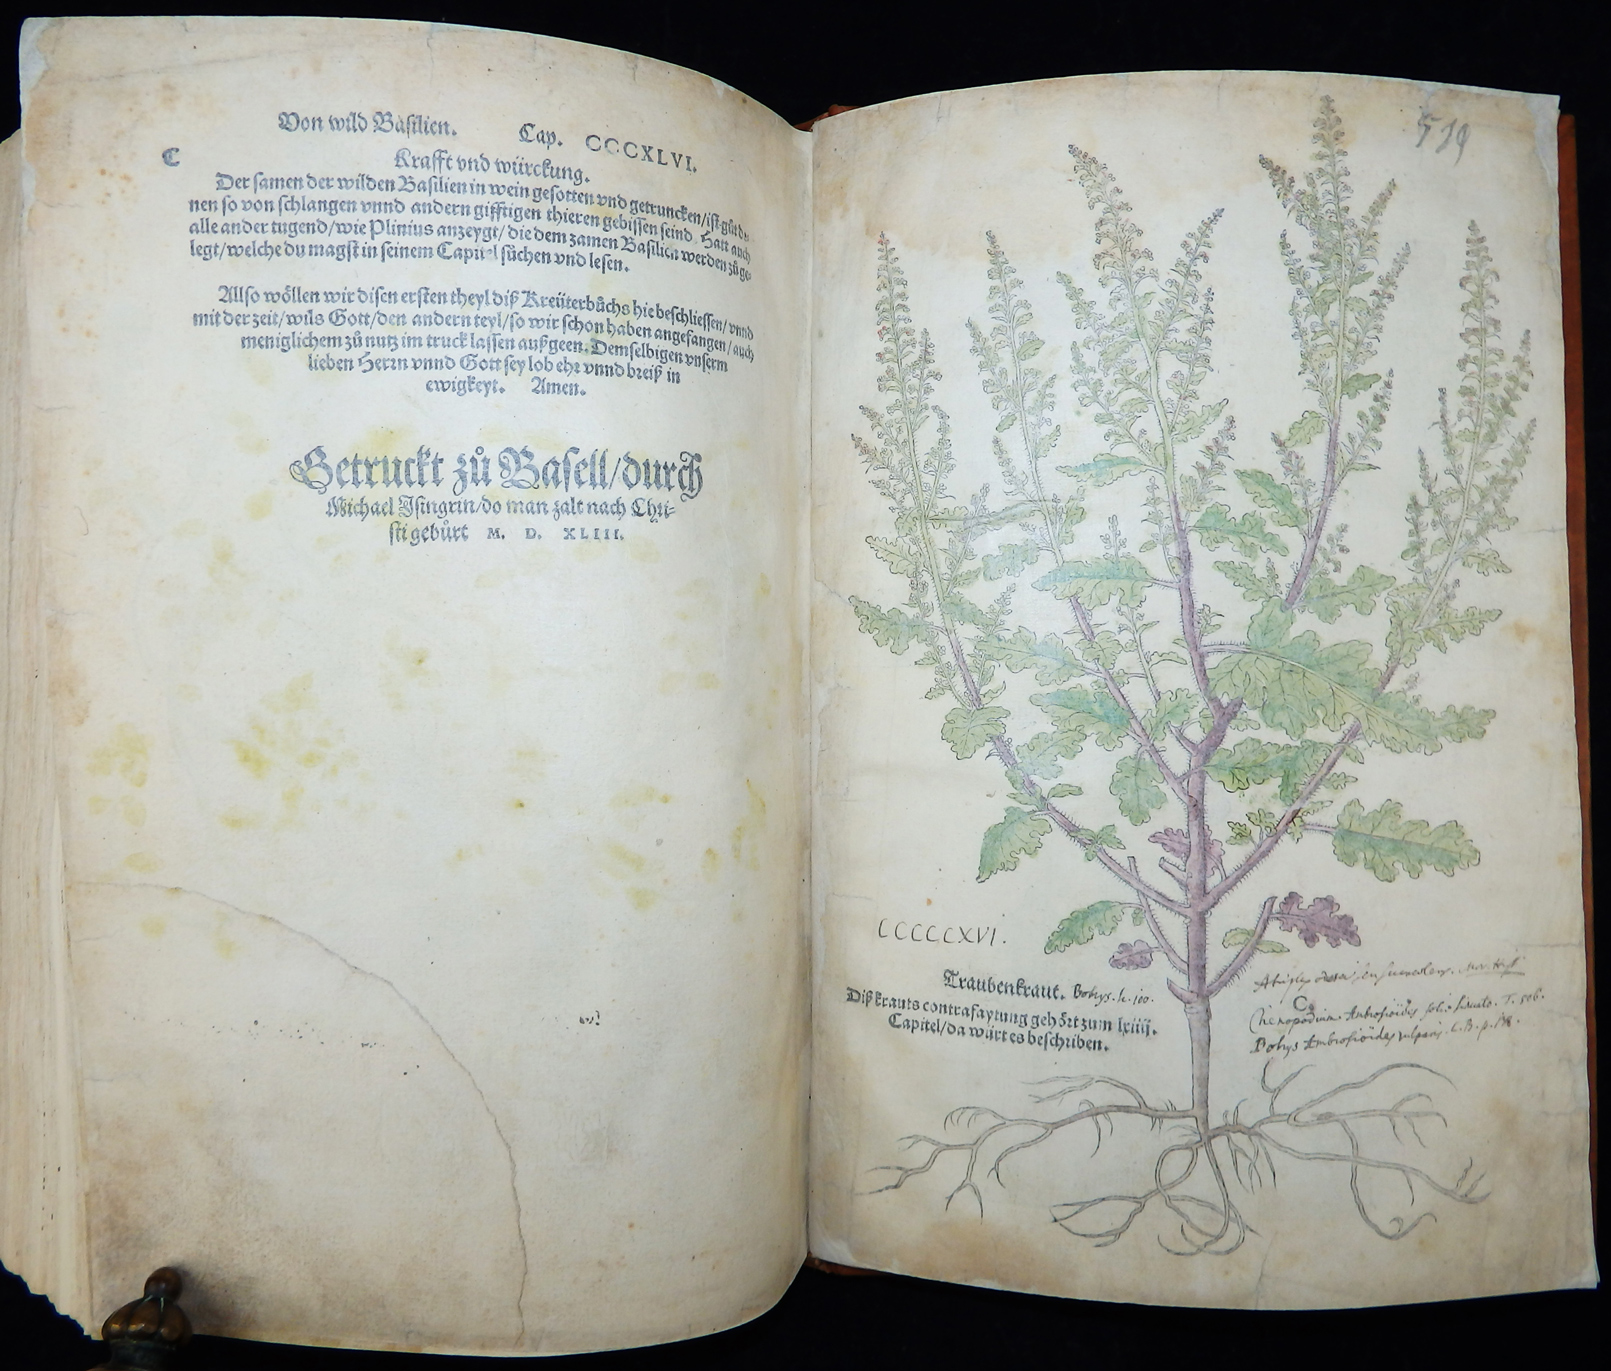 Von wild Basilien. Cap. CCCXLVI.
C Krafft vnd würckung.
Der samen der wilden Basilien in wein gesotten vnd getruncken/ist gůt de
nen so von schlangen vnnd andern gifftigen thieren gebissen seind. Hatt auch
alle ander tugend/wie Plinius anzeygt/die dem zamen Basilien werden zůge
legt/welche du magst in seinem Capitel sůchen vnd lesen.
Allso wöllen wir disen ersten theyl diß Kreüterbůchs hie beschliessen/vnnd
mit der zeit/wils Gott/den andern teyl/so wir schon haben angefangen/auch
meniglichem zů nutz im truck lassen außgeen. Demselbigen vnserm
lieben Herrn vnnd Gott sey lob ehr vnnd breiß in
ewigkeyt. Amen.
Getruckt zů Basell/durch
Michael Isingrin/do man zalt nach Chri-
sti gebůrt M. D. XLIII.
519
CCCCCXVI.
Traubenkraut. Botrys. h. 100.
Diß krauts contrafaytung gehört zum lxiiij.
Capitel/da würt es beschriben.
Chenopodium Ambrosioides folio sinuato. T. 506.
Botrys Ambrosioides vulgaris. C.B.p.